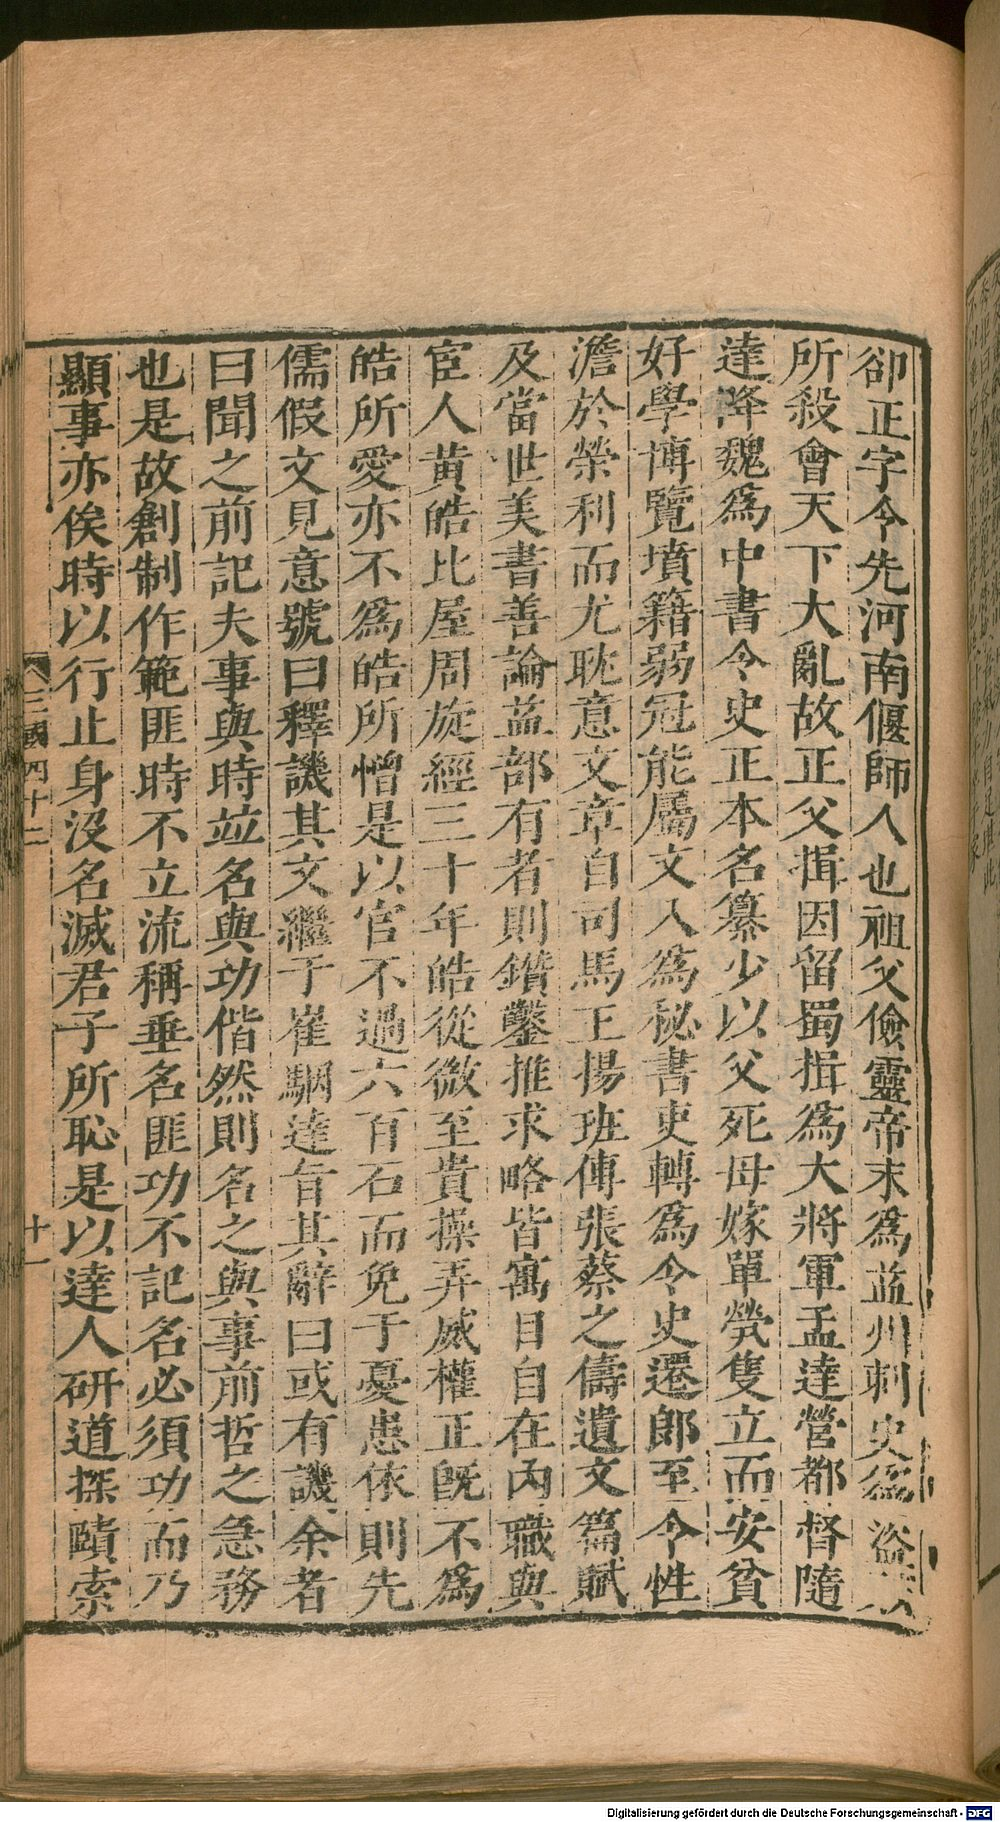 卻正字令先河南偃師人也祖父儉靈帝末爲益州刺史爲盜
所殺會天下大亂故正父揖因留蜀揖爲大將軍孟達營都督隨
達降魏爲中書令史正本名纂少以父死母嫁單煢隻立而安貧
好學博覽墳籍弱冠能屬文入爲秘書吏轉爲令史遷郎至令性
澹於榮利而尤耽意文章自司馬王揚班傅張蔡之儔遺文篇賦
及當世美書善論益部有者則鑽鑿推求略皆寓目自在內職與
宦人黄皓比屋周旋經三十年皓從微至貴操弄威權正旣不爲
皓所愛亦不爲皓所憎是以官不過六百石而免于憂患依則先
儒假文見意號曰釋譏其文繼于崔駰達旨其辭曰或有譏余者
曰聞之前記夫事與時並名與功偕然則名之與事前哲之急務
也是故創制作範匪時不立流稱垂名匪功不記名必須功而乃
顯事亦俟時以行止身沒名滅君子所恥是以達人研道探賾索
三國四十二 十一
Digitalisierung gefördert durch die Deutsche Forschungsgemeinschaft - DFG